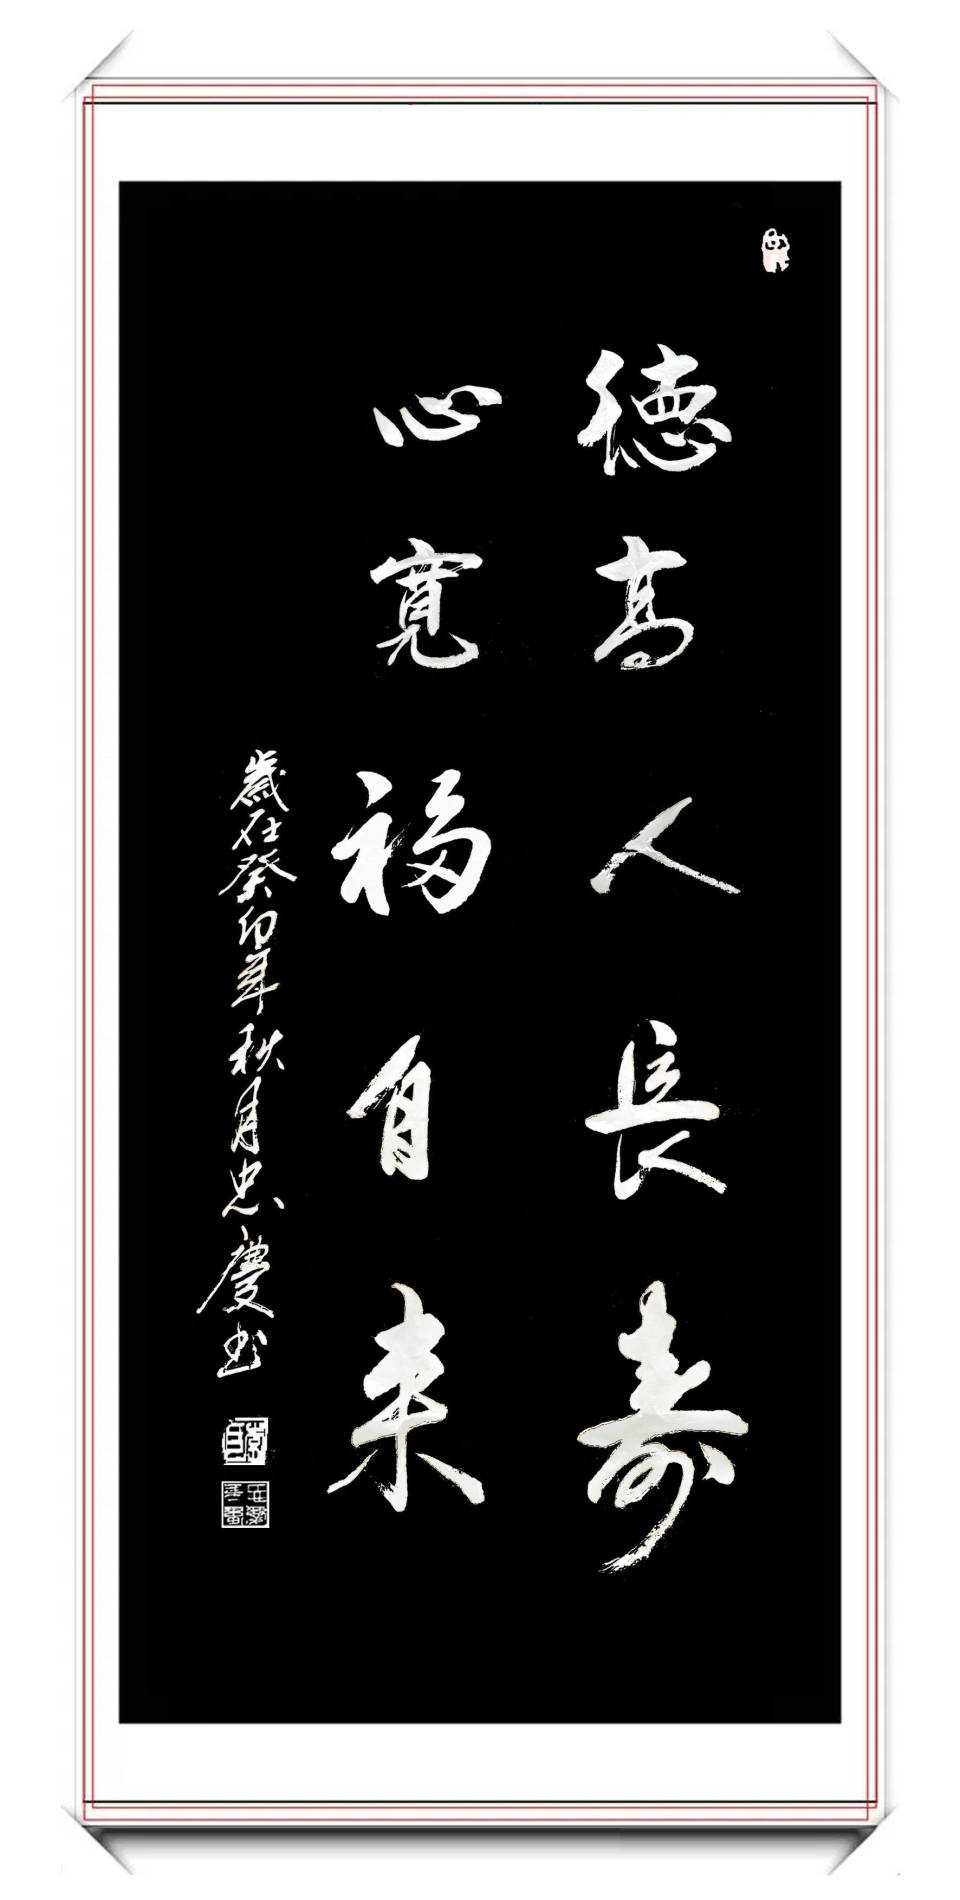 德高人長寿
心寬福自来
歲在癸卯年秋月忠慶书